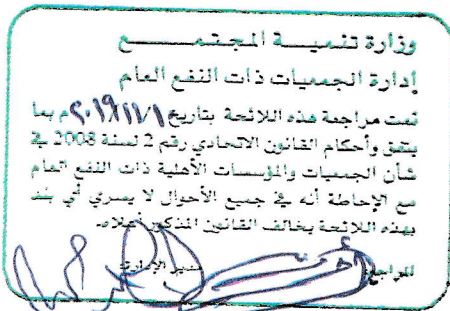 وزارة تنميـــة المجتمـــــع
إدارة الجمعيات ذات النفع العام
تمت مراجعة هذه اللائحة بتاريخ ٢٠١٩/١١/١ م بما
يتفق وأحكام القانون الاتحادي رقم 2 لسنة 2008 في
شأن الجمعيات والمؤسسات الأهلية ذات النفع العام
مع الإحاطة أنه في جميع الأحوال لا يسري أي بند
بهذه اللائحة يخالف القانون المذكور أعلاه.
المراجع مدير الإدارة